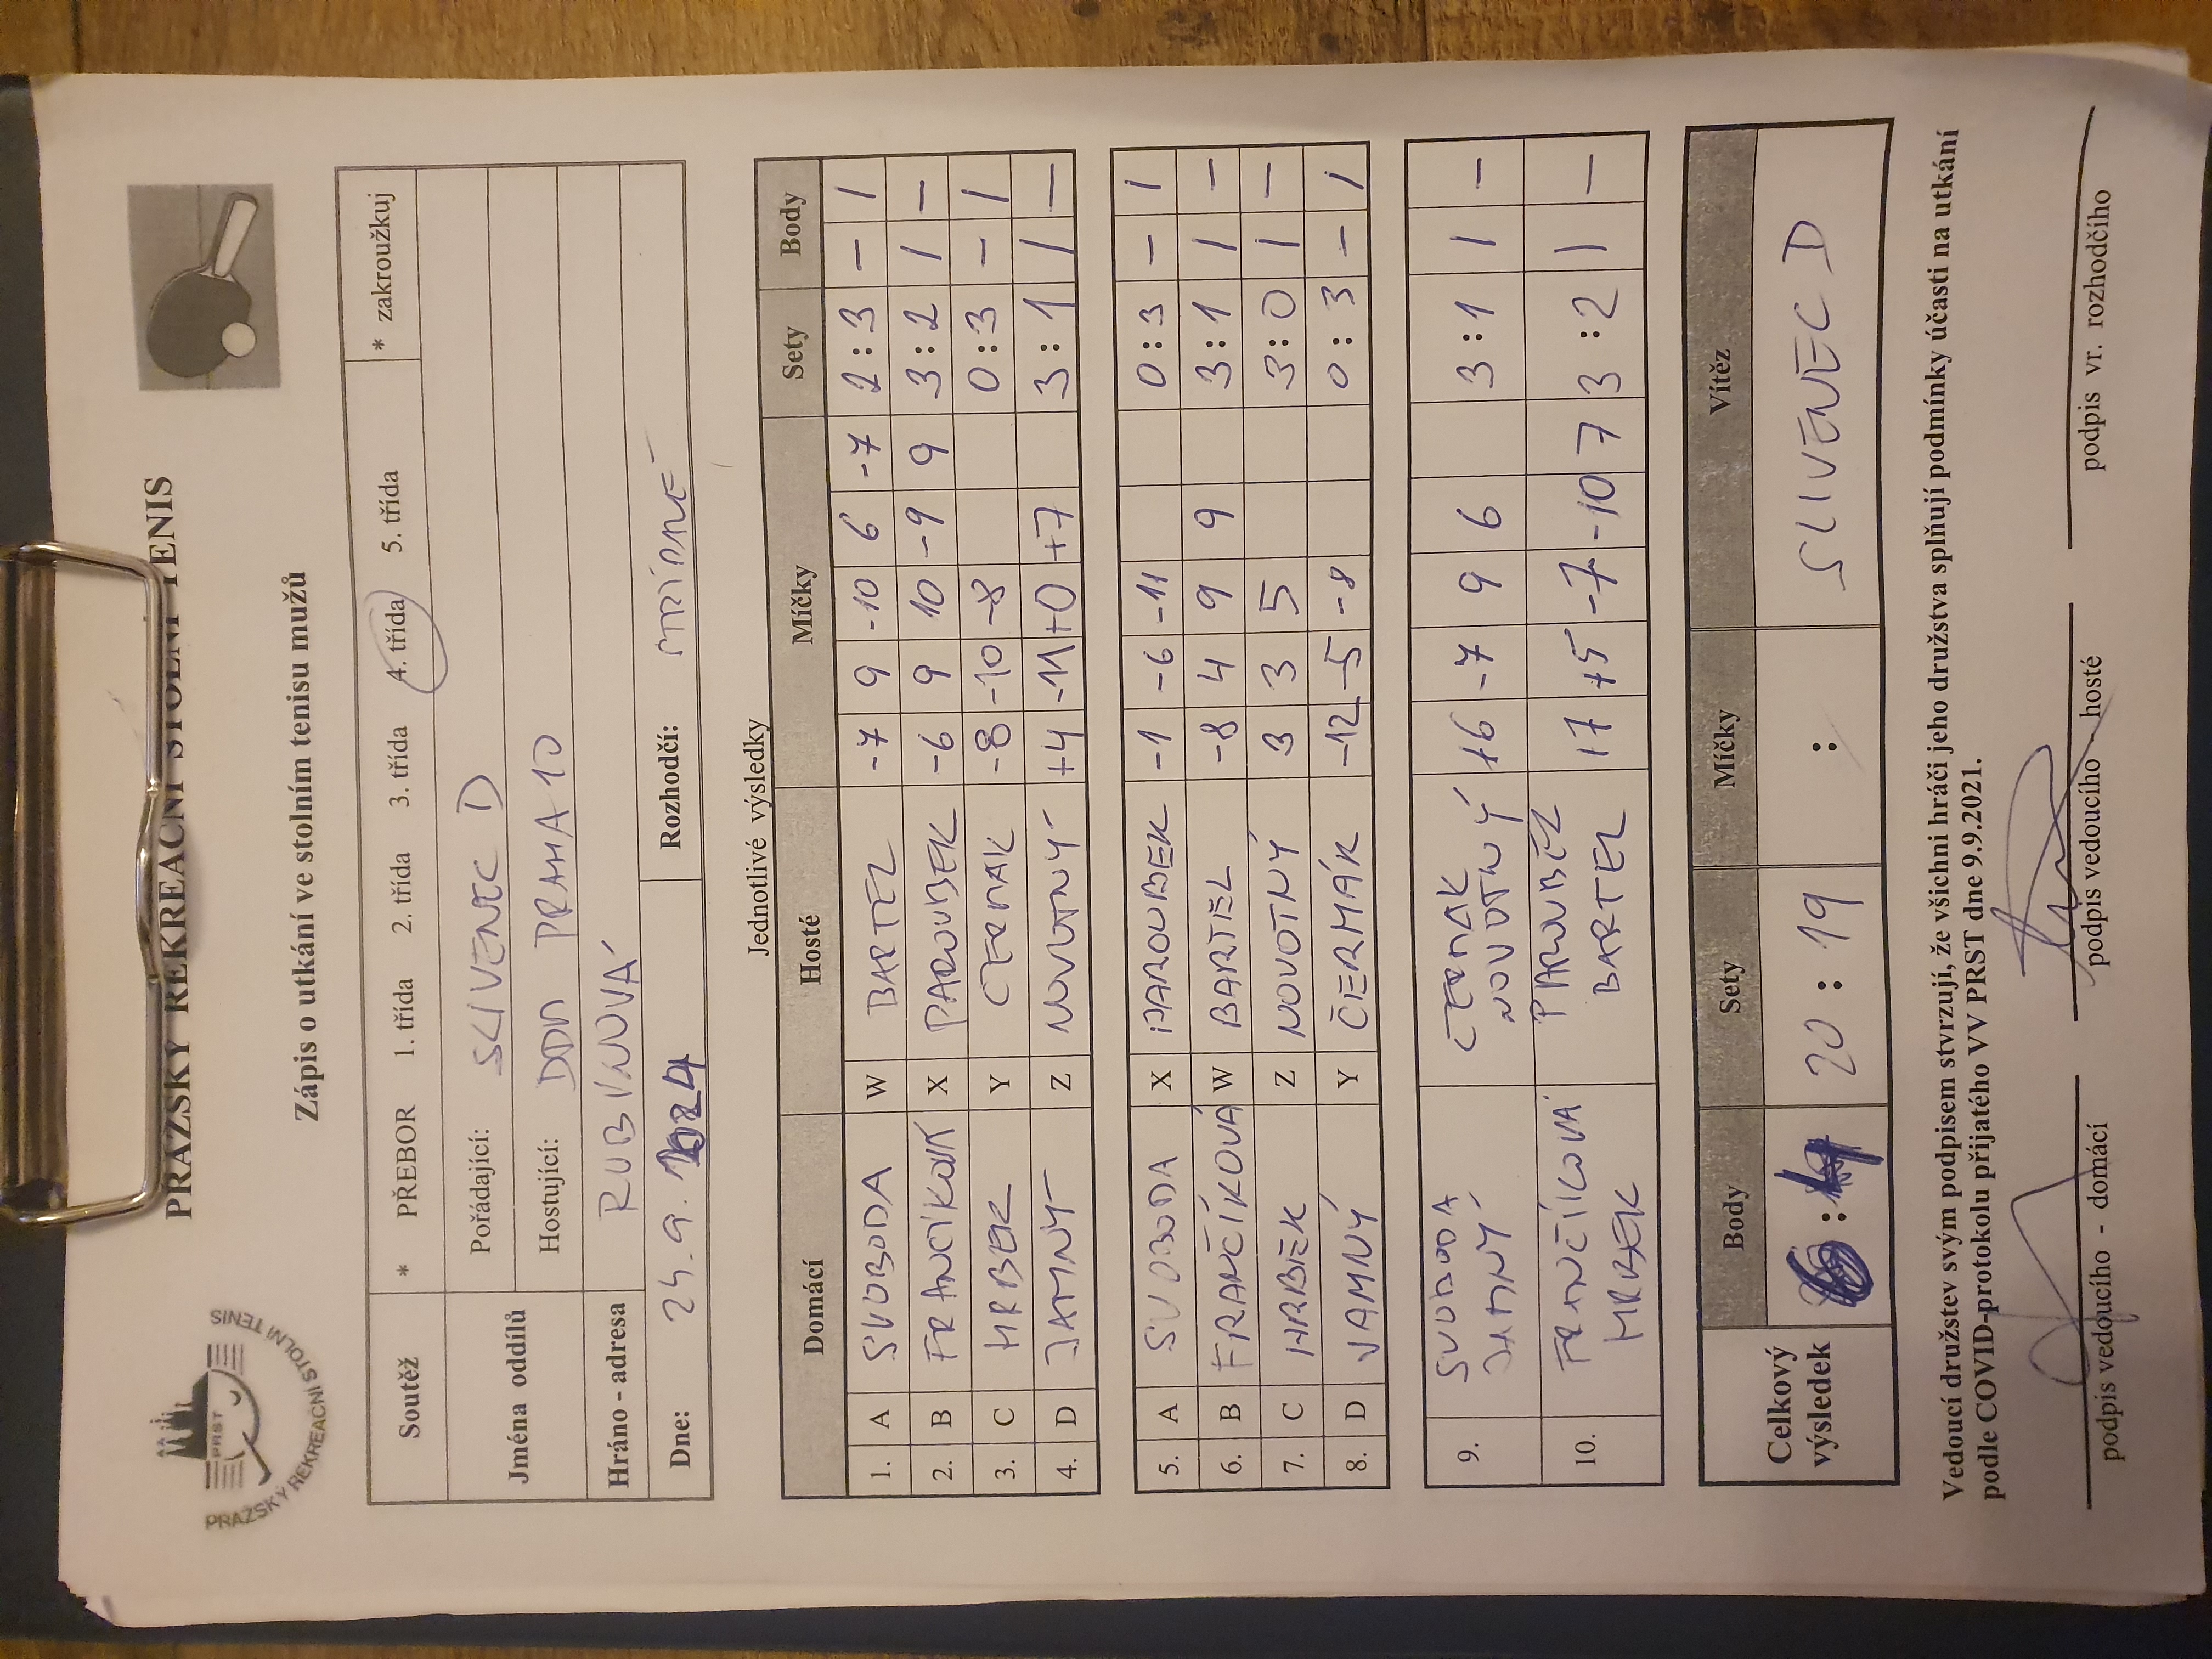 PRAŽSKÝ REKREAČNÍ STOLNÍ TENIS
PRST
PRAŽSKÝ REKREAČNÍ STOLNÍ TENIS
Zápis o utkání ve stolním tenisu mužů
Soutěž * PŘEBOR 1. třída 2. třída 3. třída 4. třída 5. třída * zakroužkuj
Jména oddílů Pořádající: SLIVENEC D
Hostující: DDM PRAHA 10
Hráno - adresa
Dne: 24.9. Rozhodčí:
Jednotlivé výsledky
Domácí Hosté Míčky Sety Body
1. A SVOBODA W BARTEL -7 9 -10 6 -7 2 : 3 – 1
2. B X PAROUBEK -6 9 10 -9 9 3 : 2 1 –
3. C HRBEK Y -8 -10 -8 0 : 3 – 1
4. D JAMNÝ Z NOVOTNÝ +4 -11 +0 +7 3 : 1 1 –
5. A SVOBODA X PAROUBEK -1 -6 -11 0 : 3 – 1
6. B FRANČÍKOVÁ W BARTEL -8 4 9 9 3 : 1 1 –
7. C HRBEK Z NOVOTNÝ 3 3 5 3 : 0 1 –
8. D JAMNÝ Y ČERMÁK -12 -5 -8 0 : 3 – 1
9. SVOBODA +6 -7 9 6 3 : 1 1 –
JAMNÝ NOVOTNÝ
10. 17 +5 -7 -10 7 3 : 2 1 –
HRBEK BARTEL
Celkový výsledek Body Sety Míčky Vítěz
: 4 20 : 19 : SLIVENEC D
Vedoucí družstev svým podpisem stvrzují, že všichni hráči jeho družstva splňují podmínky účasti na utkání
podle COVID-protokolu přijatého VV PRST dne 9.9.2021.
podpis vedoucího - domácí podpis vedoucího - hosté podpis vr. rozhodčího